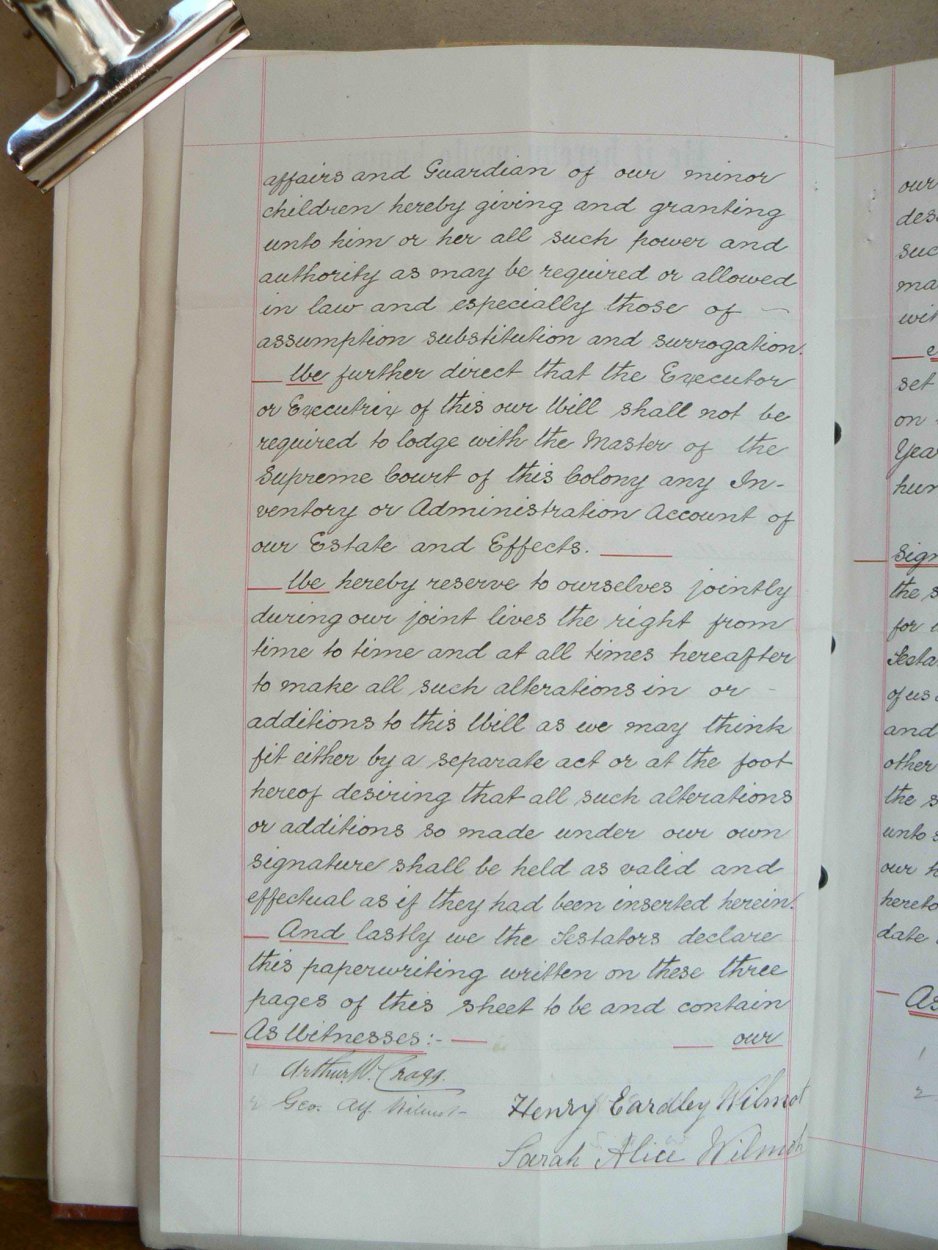 affairs and Guardian of our minor
children hereby giving and granting
unto him or her all such power and
authority as may be required or allowed
in law and especially those of —
assumption substitution and surrogation.
We further direct that the Executor
or Executrix of this our Will shall not be
required to lodge with the Master of the
Supreme Court of this Colony any In-
ventory or Administration Account of
our Estate and Effects.
We hereby reserve to ourselves jointly
during our joint lives the right from
time to time and at all times hereafter
to make all such alterations in or -
additions to this Will as we may think
fit either by a separate act or at the foot
hereof desiring that all such alterations
or additions so made under our own
signature shall be held as valid and
effectual as if they had been inserted herein.
And lastly we the Testators declare
this paperwriting written on these three
pages of this sheet to be and contain
As Witnesses:- our
1 Arthur W. Cragg.
2 Geo. Alf. Wilmot
Henry Eardley Wilmot
Sarah Alice Wilmot
our
set
on
the s
our h
date
As
1
2